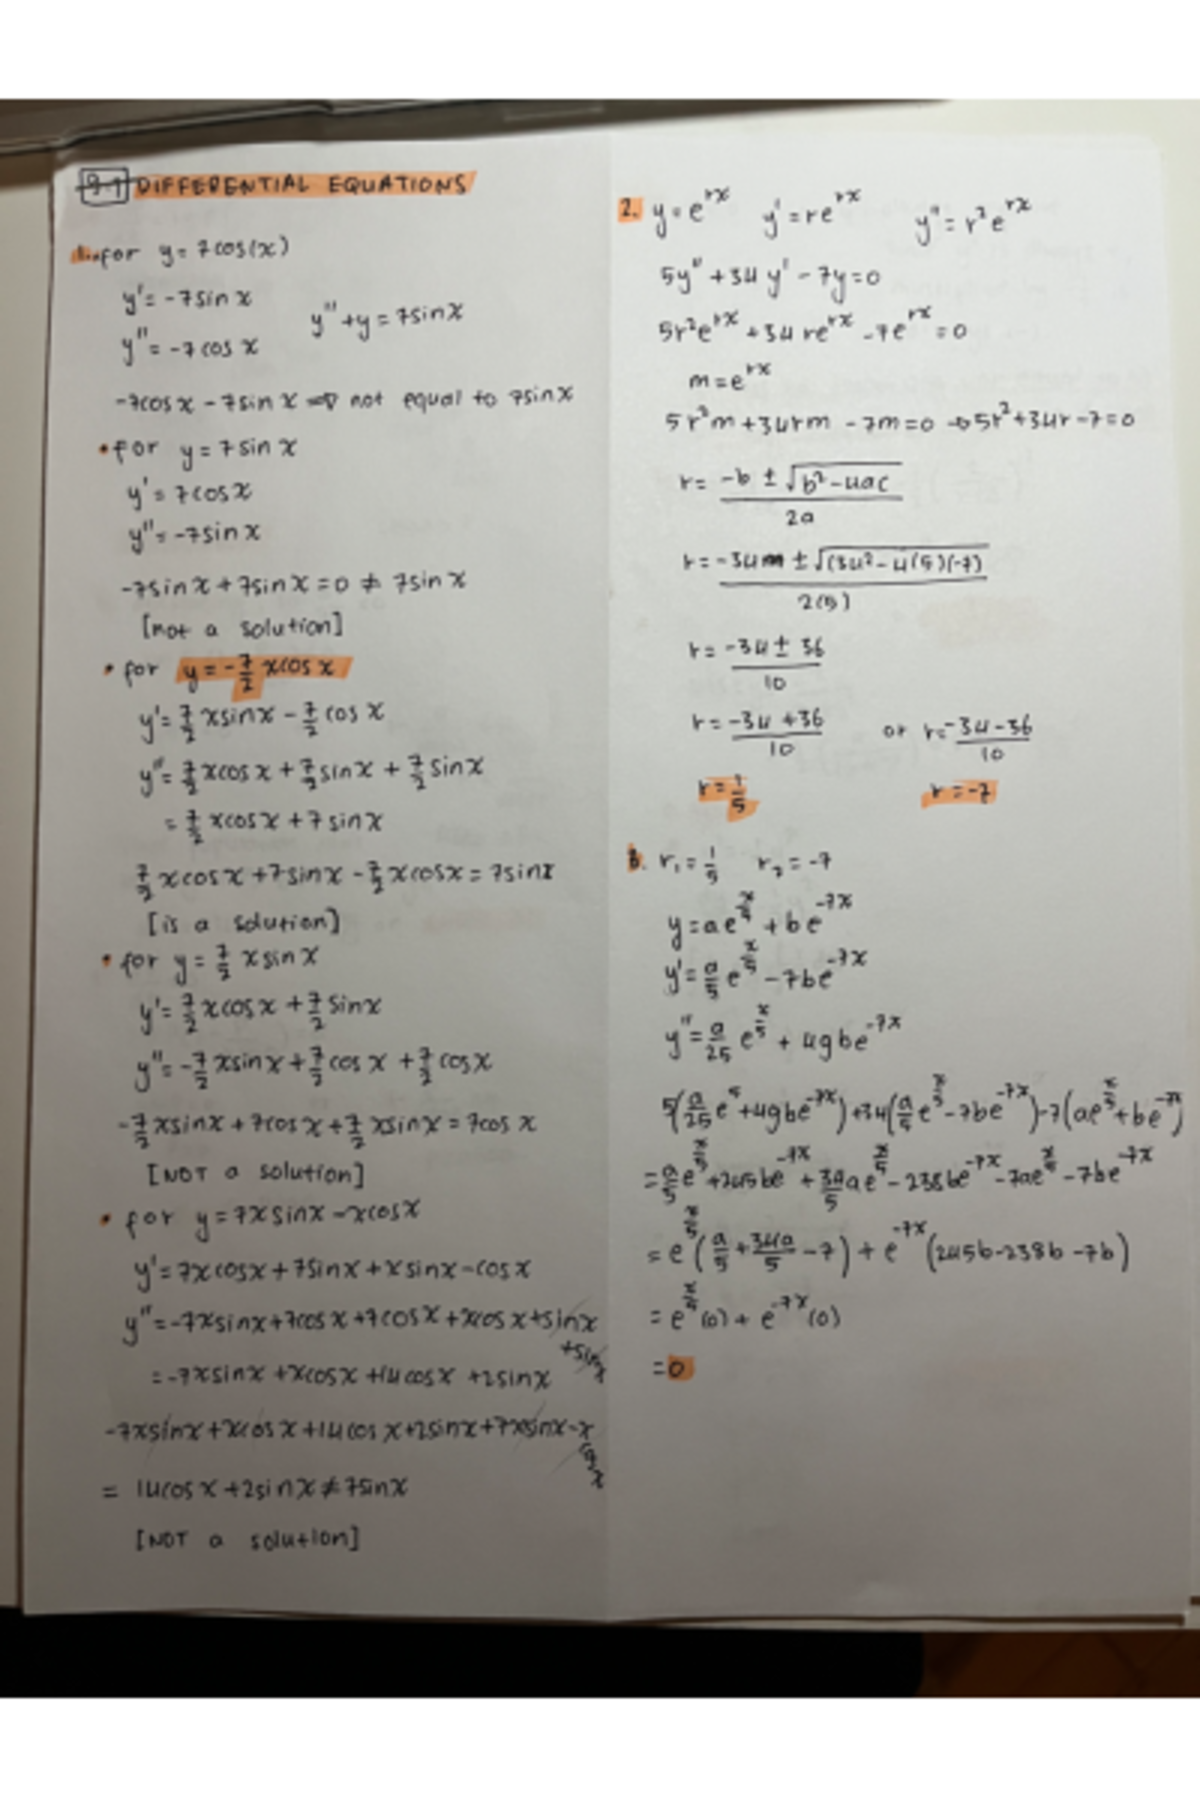 9.1 DIFFERENTIAL EQUATIONS
1. for y = 7cos(x)
y' = -7sin x
y'' = -7cos x
y'' + y = 7sin x
-7cos x - 7sin x => not equal to 7sin x
• for y = 7sin x
y' = 7cos x
y'' = -7sin x
-7sin x + 7sin x = 0 ≠ 7sin x
[not a solution]
• for y = -7/2 xcos x
y' = 7/2 xsin x - 7/2 cos x
y'' = 7/2 xcos x + 7/2 sin x + 7/2 sin x
= 7/2 xcos x + 7sin x
7/2 xcos x + 7sin x - 7/2 xcos x = 7sin x
[is a solution]
• for y = 7/2 xsin x
y' = 7/2 xcos x + 7/2 sin x
y'' = -7/2 xsin x + 7/2 cos x + 7/2 cos x
-7/2 xsin x + 7cos x + 7/2 xsin x = 7cos x
[NOT a solution]
• for y = 7xsin x - xcos x
y' = 7xcos x + 7sin x + xsin x - cos x
y'' = -7xsin x + 7cos x + 7cos x + xcos x + sin x + sin x
= -7xsin x + xcos x + 14cos x + 2sin x
-7xsin x + xcos x + 14cos x + 2sin x + 7xsin x - xcos x
= 14cos x + 2sin x ≠ 7sin x
[NOT a solution]
2. y = e^rx y' = re^rx y'' = r²e^rx
5y'' + 34y' - 7y = 0
5r²e^rx + 34re^rx - 7e^rx = 0
m = e^rx
5r²m + 34rm - 7m = 0 → 5r² + 34r - 7 = 0
r = (-b ± √(b² - 4ac)) / 2a
r = (-34 ± √(34² - 4(5)(-7))) / 2(5)
r = (-34 ± 36) / 10
r = (-34 + 36) / 10 or r = (-34 - 36) / 10
r = 1/5 r = -7
3. r₁ = 1/5 r₂ = -7
y = ae^(x/5) + be^(-7x)
y' = a/5 e^(x/5) - 7be^(-7x)
y'' = a/25 e^(x/5) + 49be^(-7x)
5(a/25 e^5 + 49be^(-7x)) + 34(a/5 e^(x/5) - 7be^(-7x)) - 7(ae^(x/5) + be^(-7x))
= a/5 e^(x/5) + 245be^(-7x) + 34/5 ae^(x/5) - 238be^(-7x) - 7ae^(x/5) - 7be^(-7x)
= e^(x/5) (a/5 + 34a/5 - 7) + e^(-7x) (245b - 238b - 7b)
= e^(x/5) (0) + e^(-7x) (0)
= 0